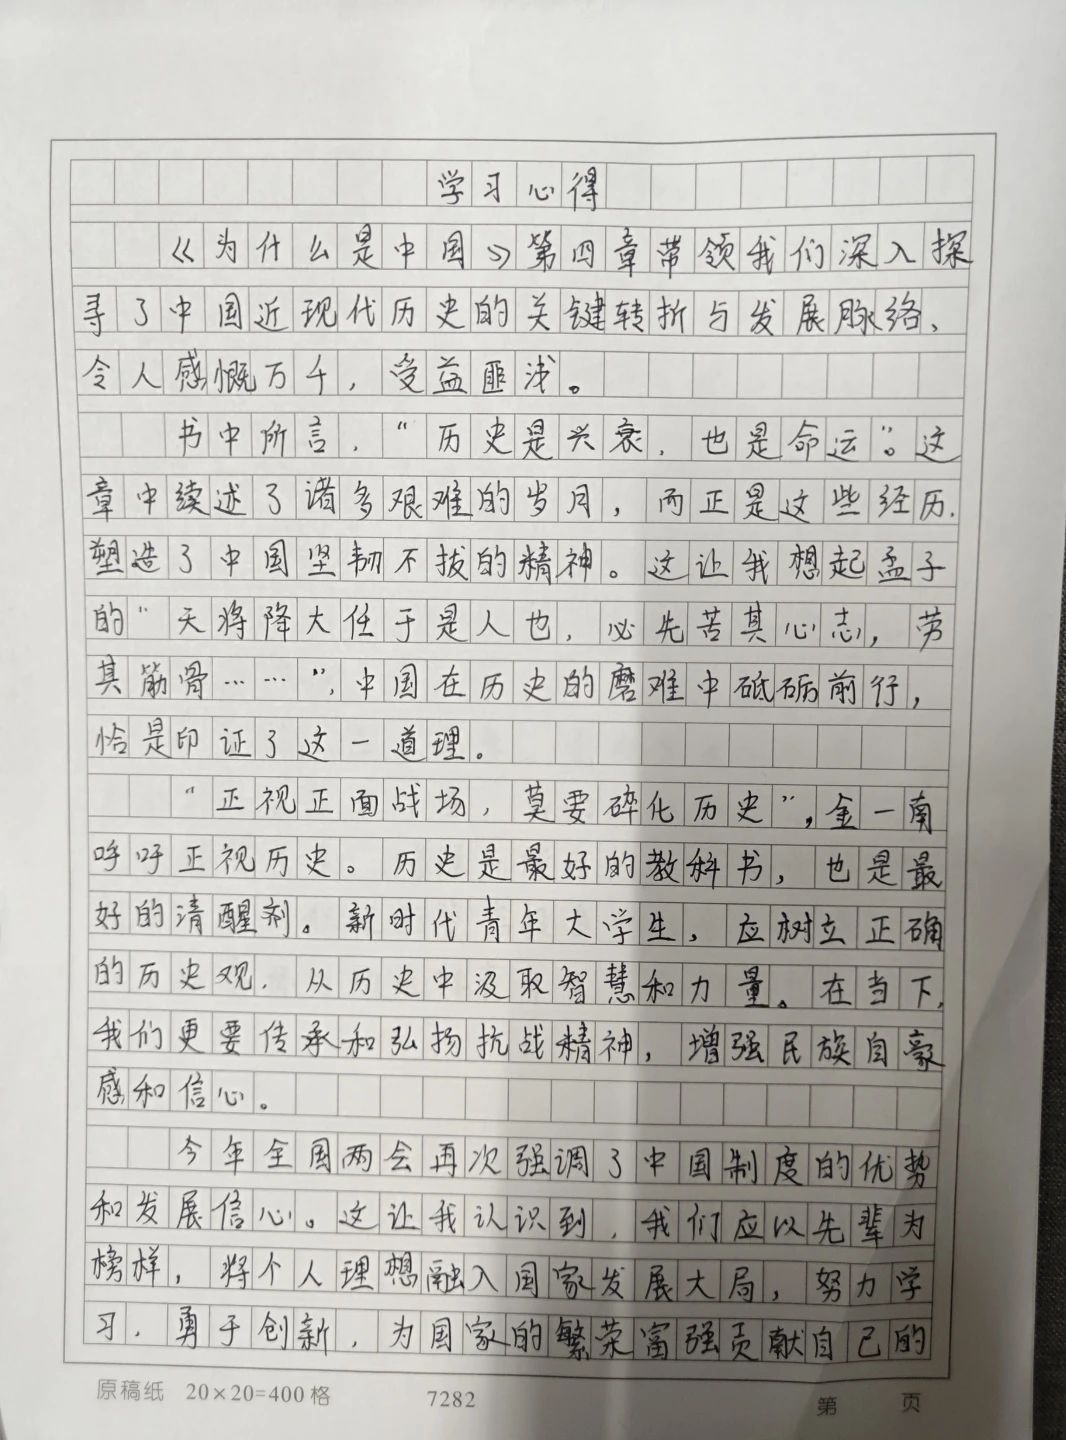 学习心得
《为什么是中国》第四章带领我们深入探
寻了中国近现代历史的关键转折与发展脉络、
令人感慨万千，受益匪浅。
书中所言，“历史是兴衰，也是命运”。这
章中续述了诸多艰难的岁月，而正是这些经历，
塑造了中国坚韧不拔的精神。这让我想起孟子
的“天将降大任于是人也，必先苦其心志，劳
其筋骨……”，中国在历史的磨难中砥砺前行，
恰是印证了这一道理。
“正视正面战场，莫要碎化历史”，金一南
呼吁正视历史。历史是最好的教科书，也是最
好的清醒剂。新时代青年大学生，应树立正确
的历史观，从历史中汲取智慧和力量。在当下，
我们更要传承和弘扬抗战精神，增强民族自豪
感和信心。
今年全国两会再次强调了中国制度的优势
和发展信心。这让我认识到，我们应以先辈为
榜样，将个人理想融入国家发展大局，努力学
习，勇于创新，为国家的繁荣富强贡献自己的
原稿纸 20×20=400格 7282 第 页